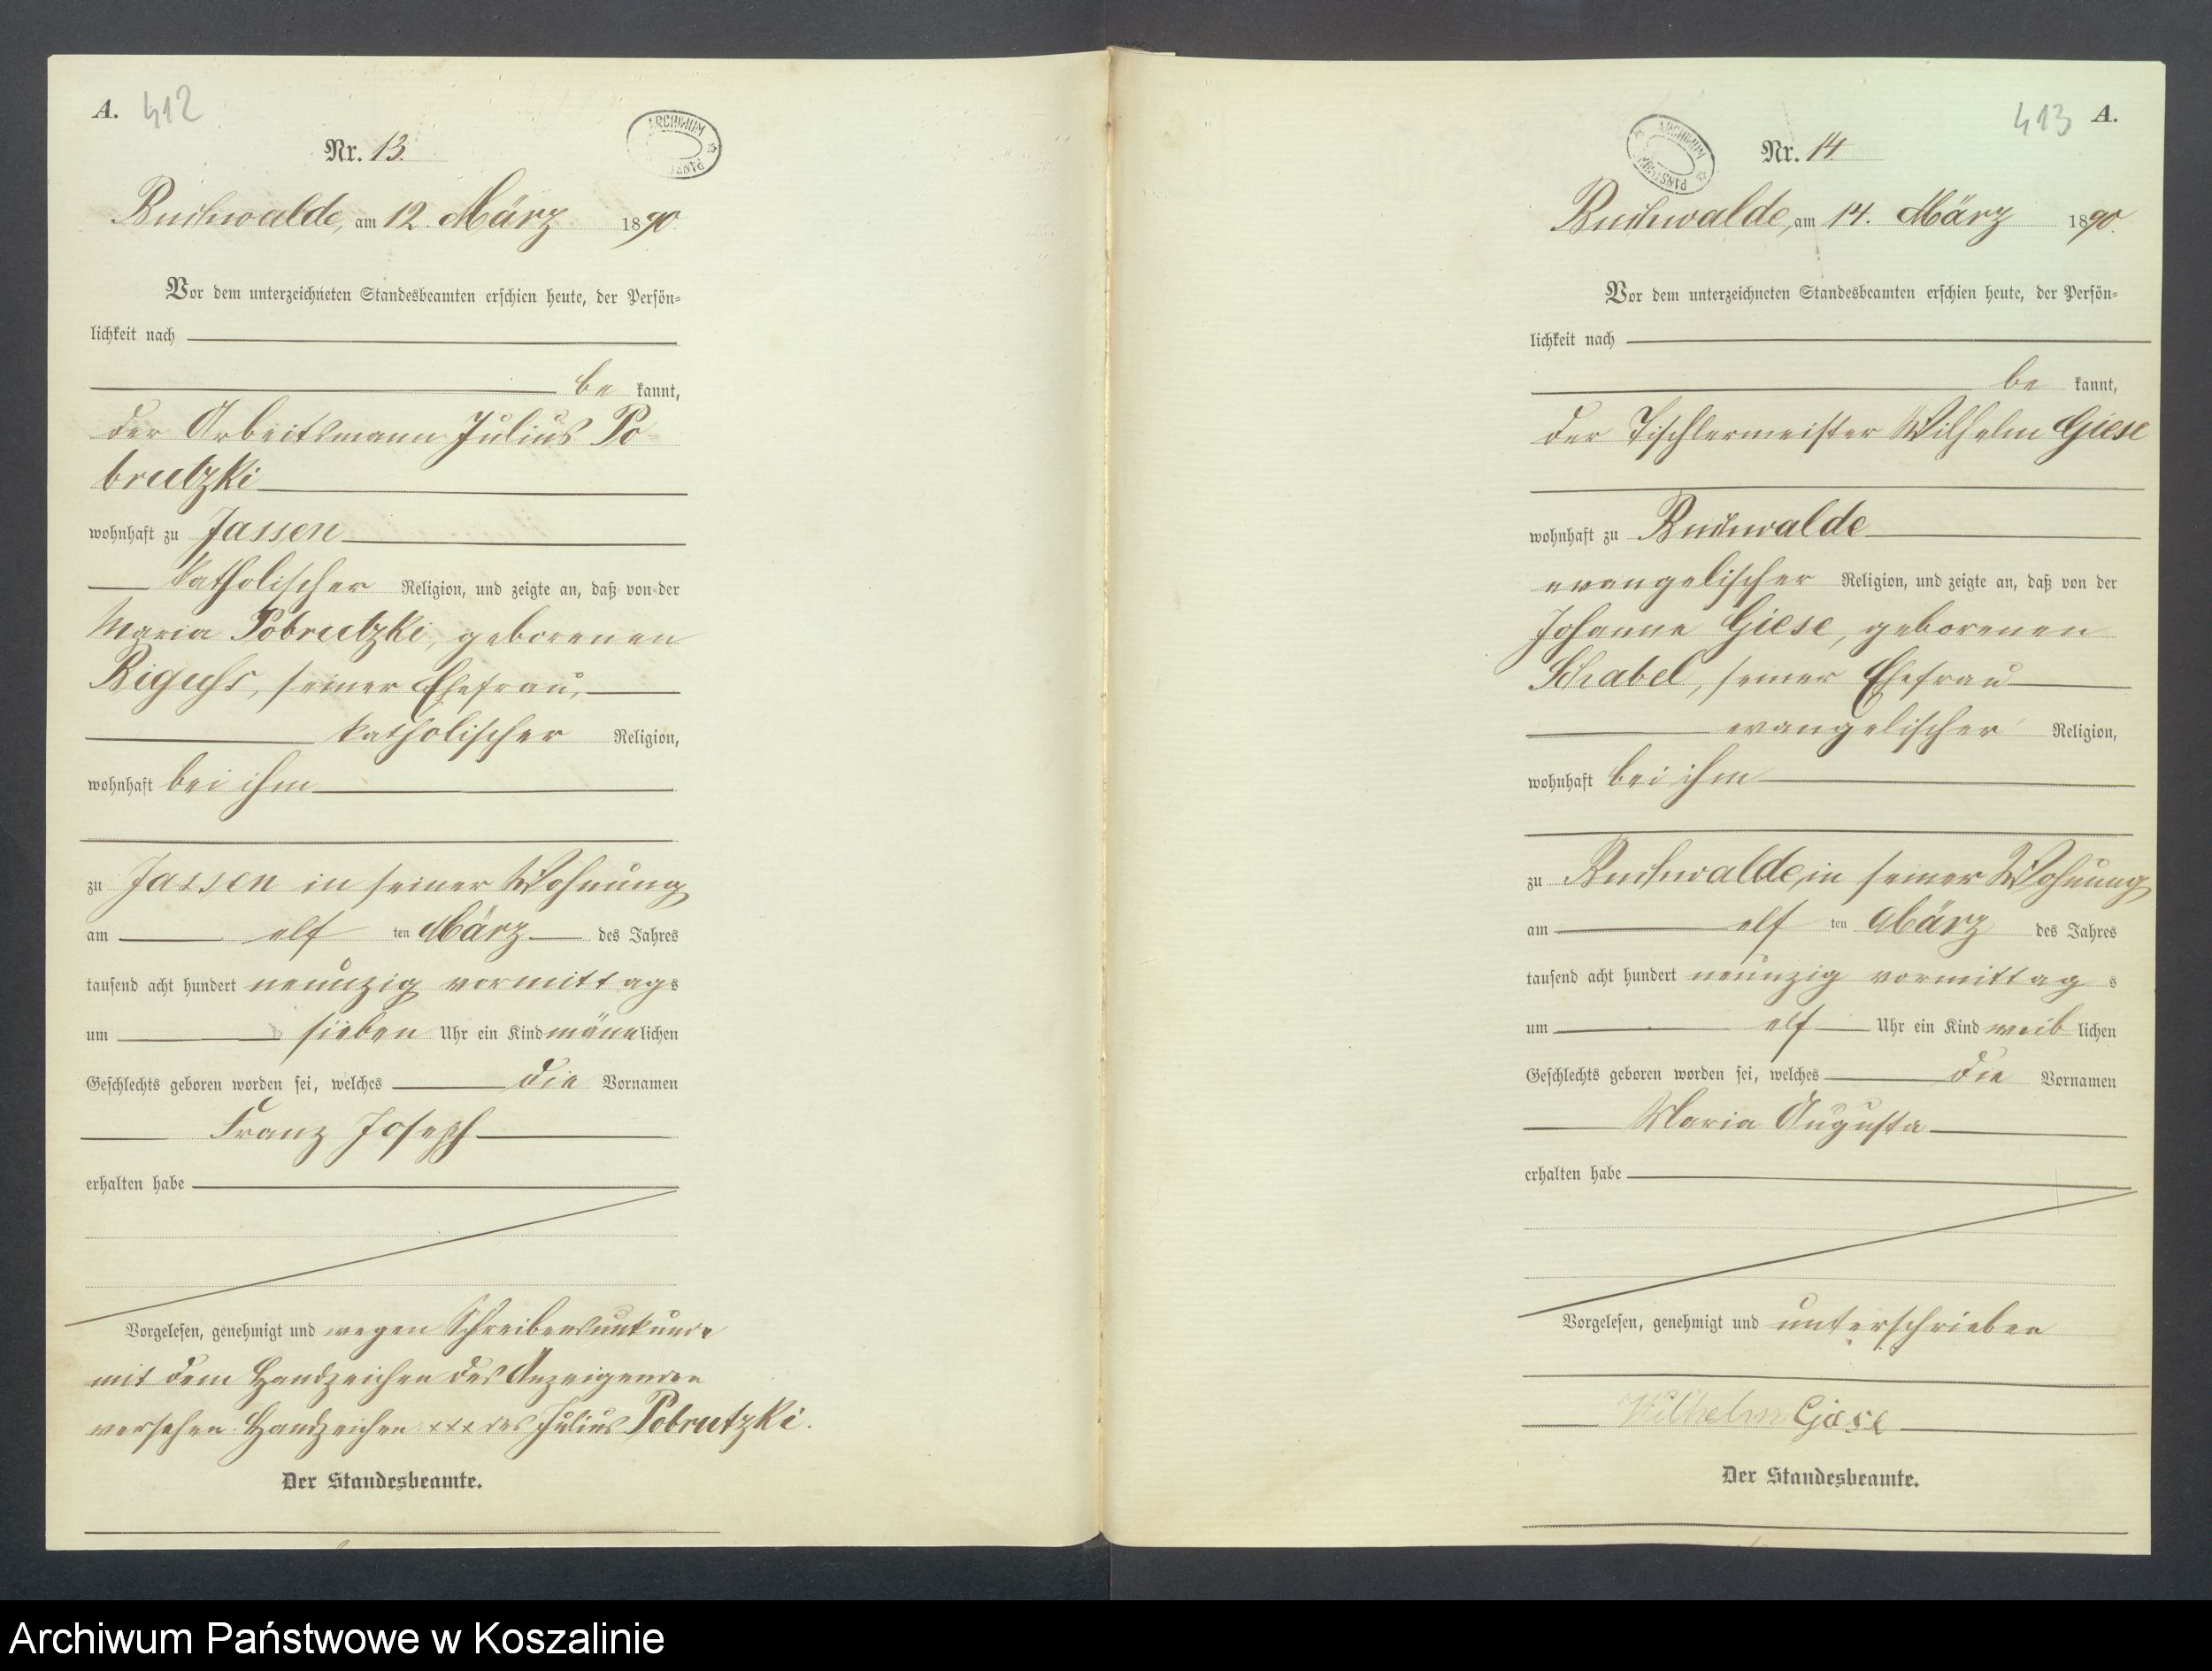 A. 412
ARCHIWUM PAŃST
Nr. 13.
Buchwalde, am 12. März 1890.
Vor dem unterzeichneten Standesbeamten erschien heute, der Persön-
lichkeit nach
be kannt,
der Arbeitsmann Julius Po-
brutzki
wohnhaft zu Jassen
katholischer Religion, und zeigte an, daß von der
Maria Pobrutzki, geborenen
seiner Ehefrau,
katholischer Religion,
wohnhaft bei ihm
zu Jassen in seiner Wohnung
am elf ten März des Jahres
tausend acht hundert neunzig vormittags
um sieben Uhr ein Kind männlichen
Geschlechts geboren worden sei, welches die Vornamen
Franz Joseph
erhalten habe
Vorgelesen, genehmigt und wegen Schreibensunkunde
mit dem Handzeichen des Anzeigenden
versehen Handzeichen xxx des Julius Pobrutzki.
Der Standesbeamte.
413 A.
ARCHIWUM PAŃSTWOW
Nr. 14
Buchwalde, am 14. März 1890.
Vor dem unterzeichneten Standesbeamten erschien heute, der Persön-
lichkeit nach
be kannt,
der Tischlermeister Wilhelm Giese
wohnhaft zu Buchwalde
evangelischer Religion, und zeigte an, daß von der
Johanne Giese, geborenen
Schabel, seiner Ehefrau
evangelischer Religion,
wohnhaft bei ihm
zu Buchwalde, in seiner Wohnung
am elf ten März des Jahres
tausend acht hundert neunzig vormittag s
um elf Uhr ein Kind weib lichen
Geschlechts geboren worden sei, welches die Vornamen
Maria Augusta
erhalten habe
Vorgelesen, genehmigt und unterschrieben
Wilhelm Giese
Der Standesbeamte.
Archiwum Państwowe w Koszalinie